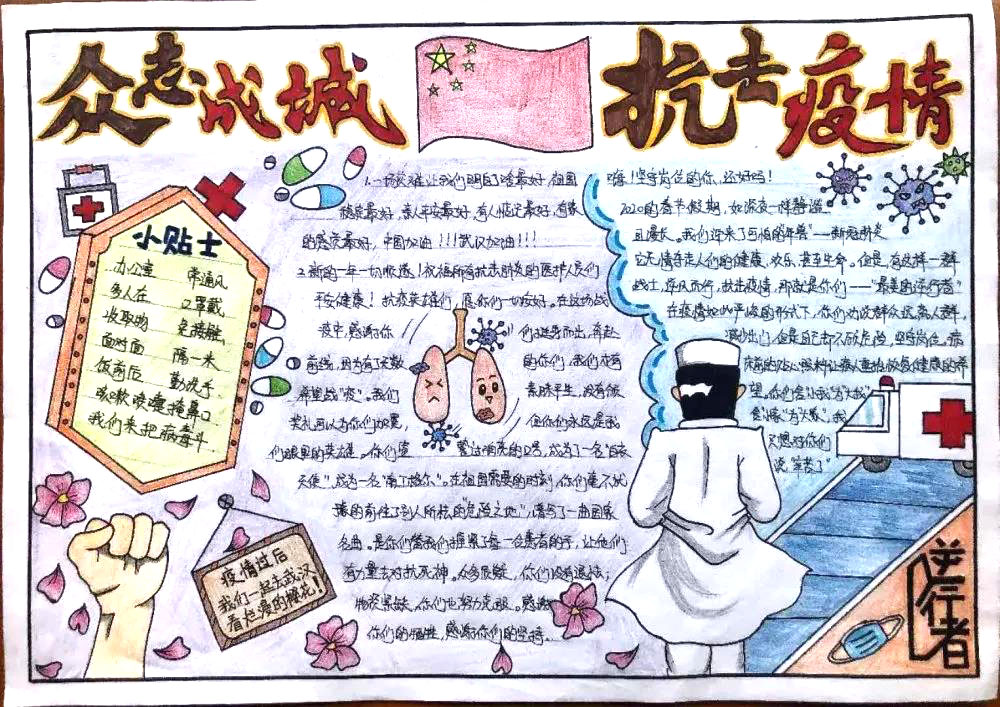 众志成城 抗击疫情
小贴士
办公室 常通风
多人在 口罩戴
收取物 免接触
面对面 隔一米
饭前后 勤洗手
咳嗽喷嚏掩鼻口
我们来把病毒斗
1.一场灾难让我们明白了啥最好，祖国
稳定最好，亲人平安最好，有人惦记最好，有家
的感觉最好，中国加油！！！武汉加油！！！
2.新的一年一切顺遂！祝福所有抗击肺炎的医护人员们
平安健康！抗疫英雄们，愿你们一切安好。在这场战
疫中，感谢你 们挺身而出，奔赴
前线，因为有了无数 的你们，我们才有
希望战"疫"。我们 素昧平生，没有
奖礼可以为你们加冕， 但你们永远是我
们眼里的英雄。你们
天使"，成为一名"南丁格尔"。在祖国需要的时刻，你们毫不犹
豫的前往了别人所惊的"危险之地"，谱写了一曲国家
名曲。是你们替我们握紧了每一位患者的手，让他们
有力量去对抗死神。众多质疑，你们没有退怯；
物资紧缺，你们也努力克服。感谢
你们的牺牲，感谢你们的坚持。
嗨！坚守岗位的你，还好吗！
2020的春节假期，如深夜一样静谧
且漫长。我们迎来了可怕的"年兽"——新冠肺炎
它无情夺走人们的健康、欢乐，甚至生命。但是，有这样一群
战士，逆风而行，抗击疫情，那就是你们——"最美的逆行者"
在疫情如此严峻的形式下，你们劝诫群众远离人群，
减少出门，但是自己却不顾危险，坚守岗位。病
床前的贴心照料让病人重拾恢复健康的希
望。你们舍"小我"为"大我"
舍"小家"为"大家"，我
只想对你们
说"辛苦了"
疫情过后
我们一起去武汉
看烂漫的樱花！
逆行者